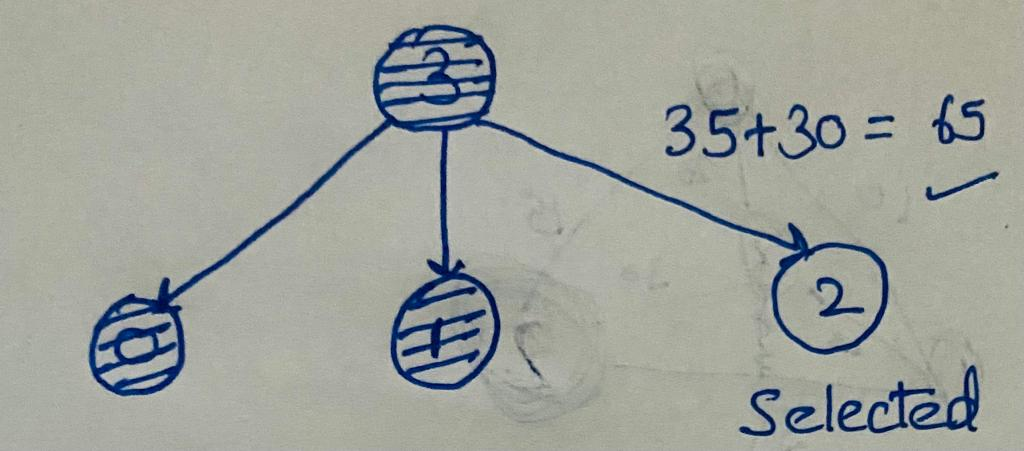 3
35+30 = 65
0
1
2
Selected